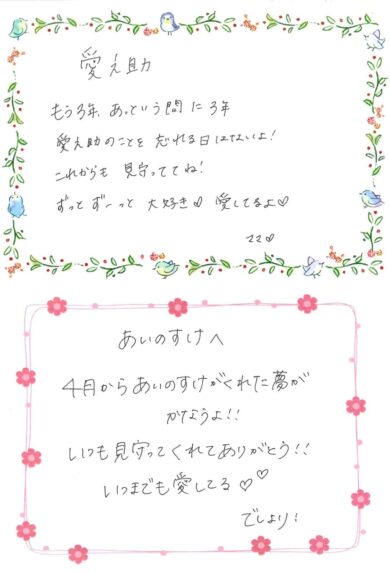 愛之助
もう3年、あっという間に3年
愛之助のことを忘れる日はないよ!
これからも見守っててね!
ずっとずーっと大好き♡愛してるよ♡
ママ♡
あいのすけへ
4月からあいのすけがくれた夢が
かなうよ!!
いつも見守ってくれてありがとう!!
いつまでも愛してる♡♡
でしより!